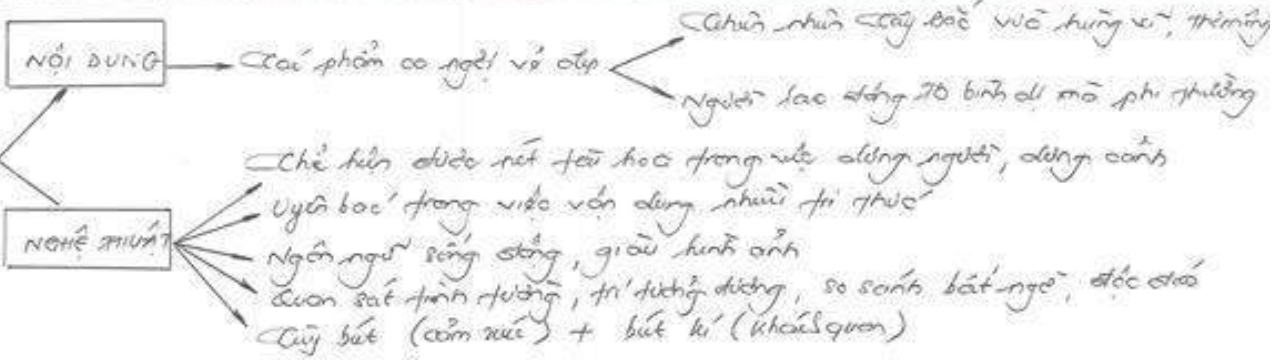 NỘI DUNG
Tác phẩm ca ngợi vẻ đẹp
Thiên nhiên Tây Bắc vừa hùng vĩ, thơ mộng
Người lao động TB bình dị mà phi thường
NGHỆ THUẬT
Thể hiện được nét tài hoa trong việc dựng người, dựng cảnh
Uyên bác trong việc vận dụng nhiều tri thức
Ngôn ngữ sống động, giàu hình ảnh
Quan sát tinh tường, trí tưởng tượng, so sánh bất ngờ, độc đáo
Tùy bút (cảm xúc) + bút kí (khách quan)